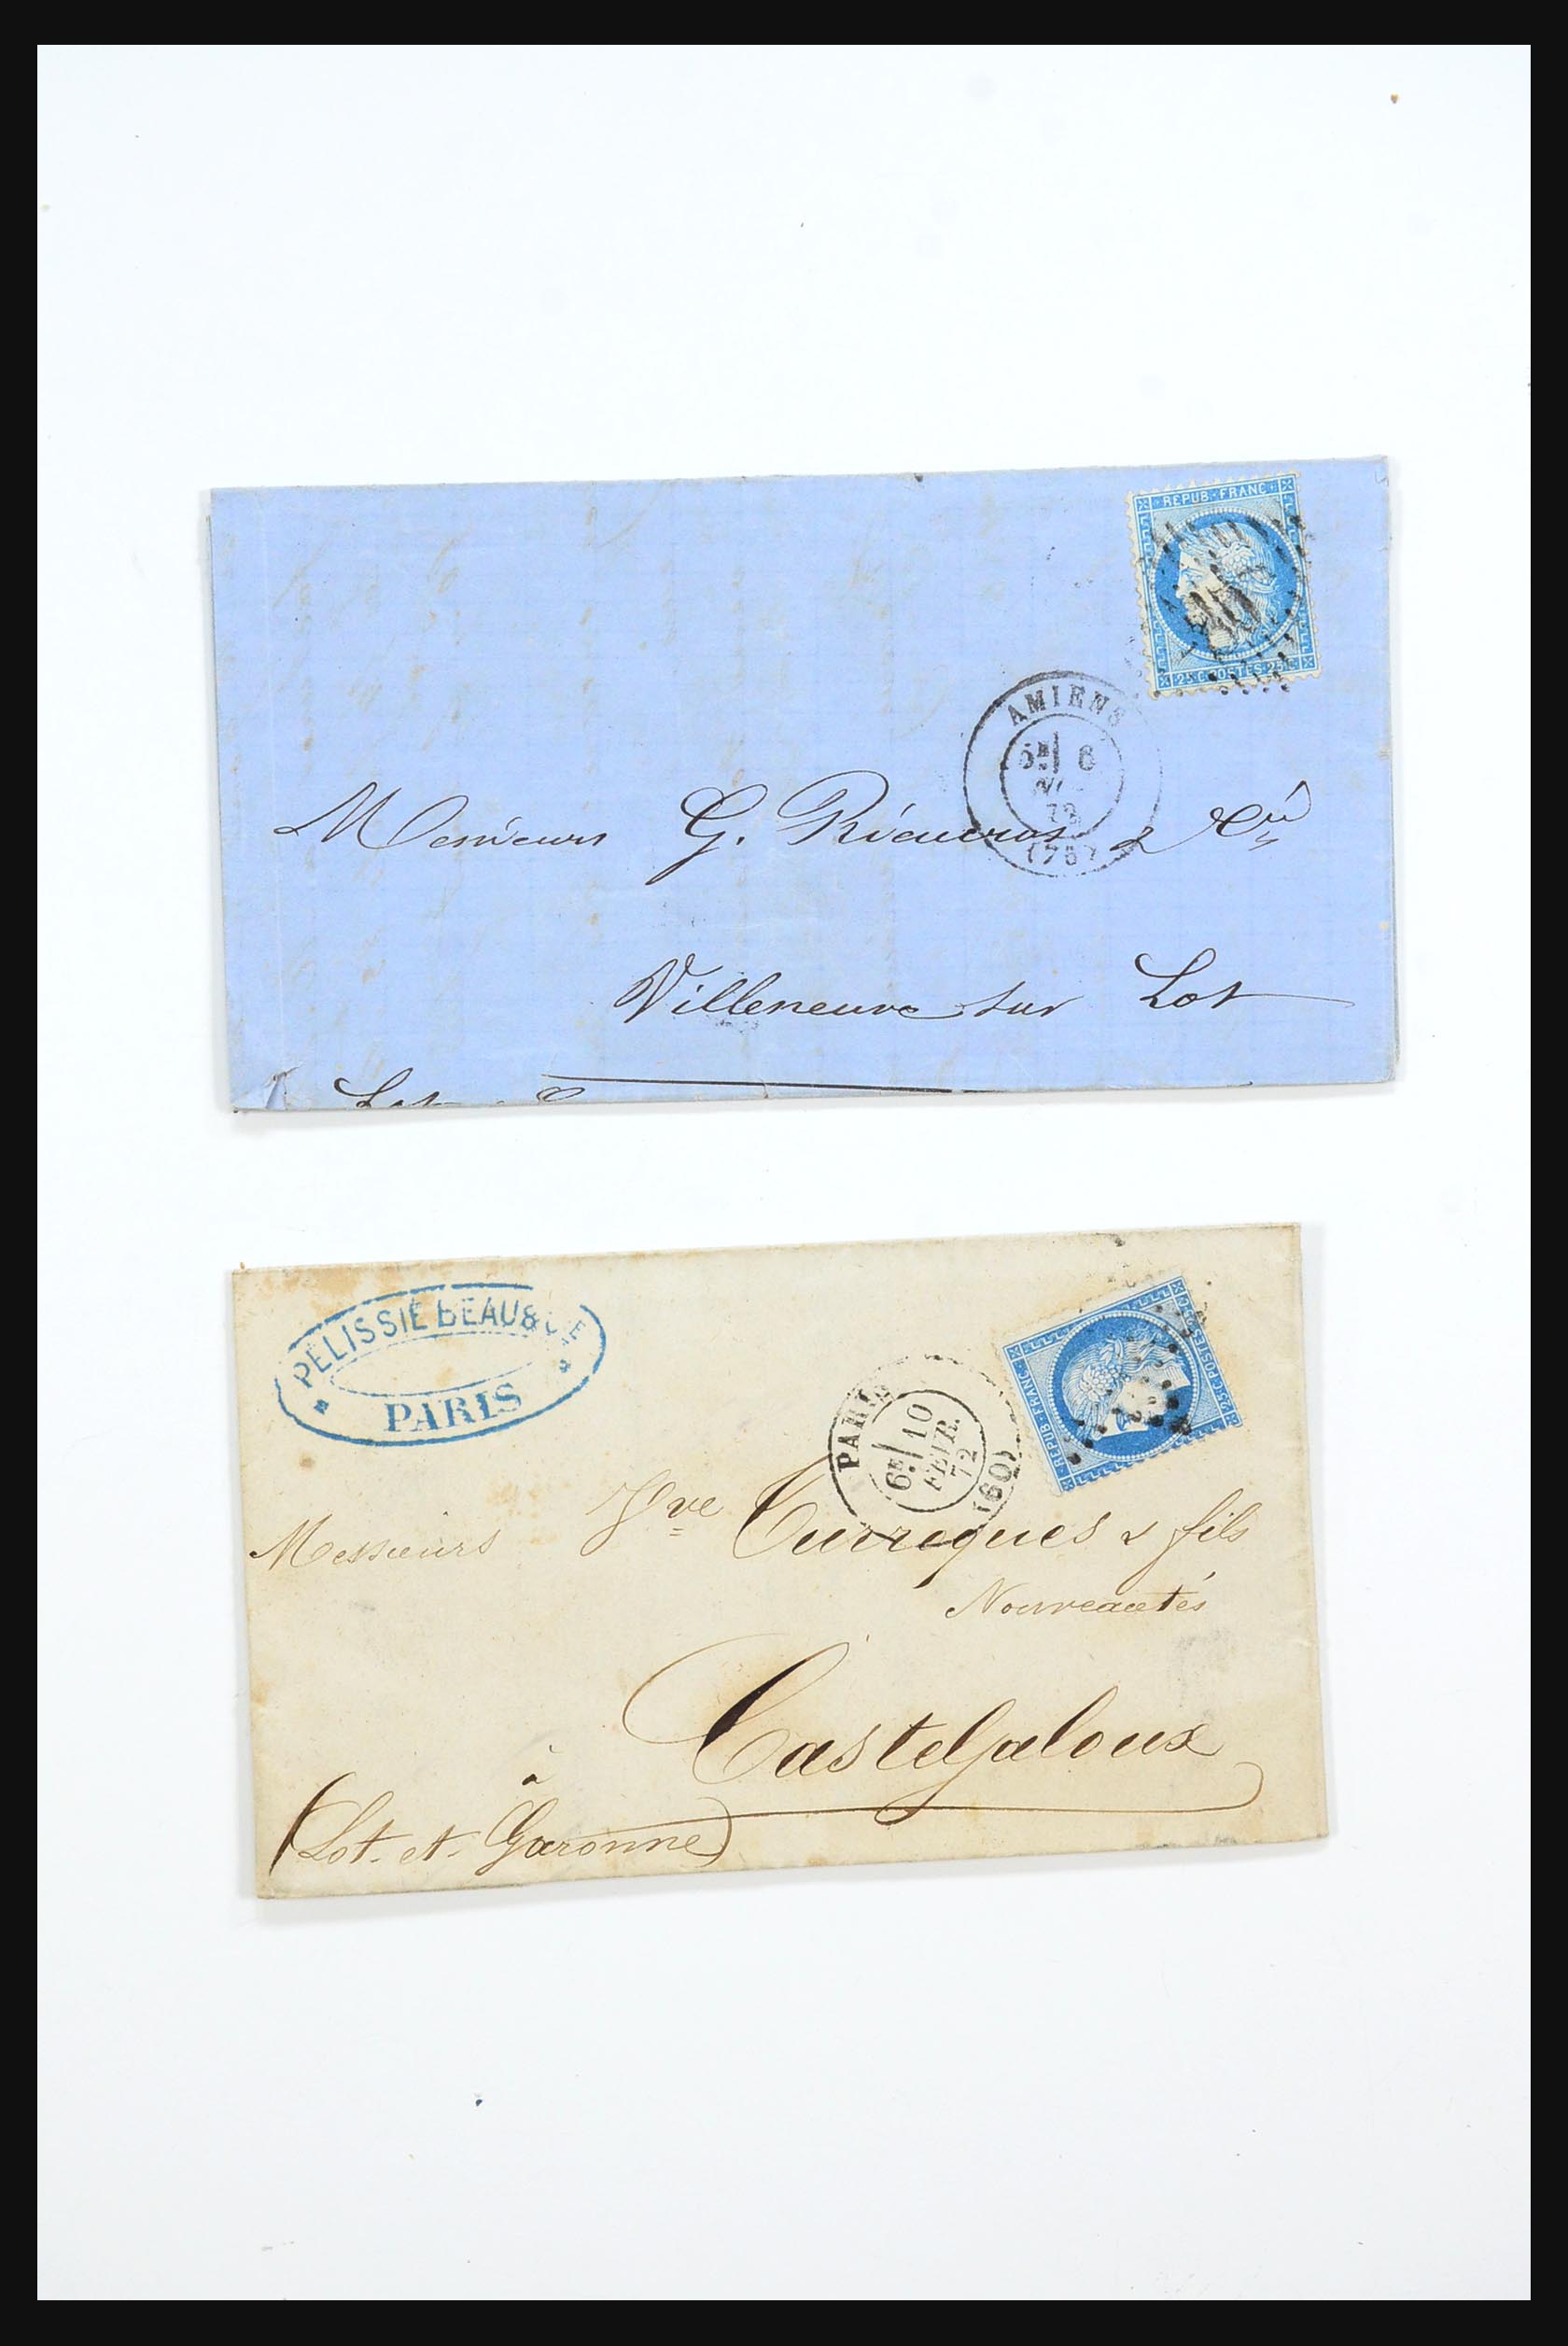 REPUB · FRANC
25 C POSTES 25 C
AMIENS
5E 6
72
Messieurs G. &
Villeneuve sur Lot
Lot
PELISSIE BEAU &
PARIS
REPUB · FRANC
25 C POSTES 25 C
PARIS
6E 10
FEVR.
72
(60)
Messieurs Vve & fils
Nouveautés
à Casteljaloux
(Lot. et. Garonne)